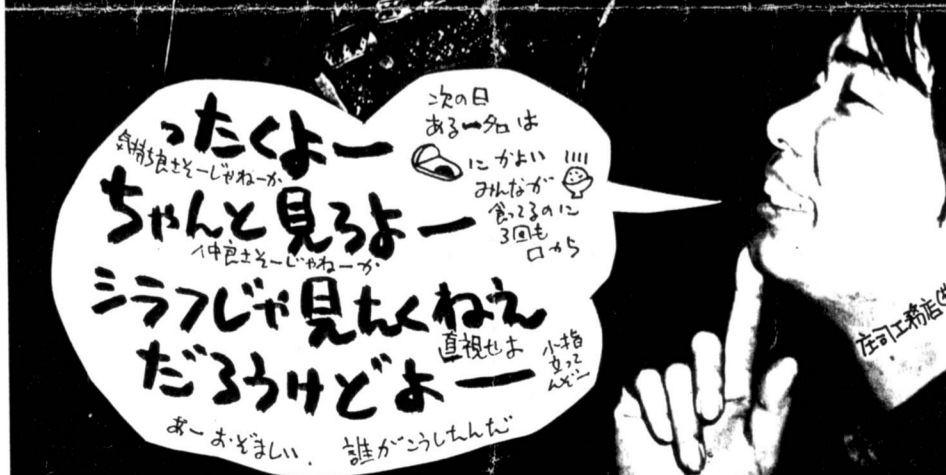 ったくよー
気持ち良さそーじゃねーか
ちゃんと見ろよー
仲良さそーじゃねーか
シラフじゃ見たくねえ
だろうけどよー
直視せよ
小指
立って
んぞー
あーおぞましい、誰がこうしたんだ
次の日
ある一名は
にかよい
みんなが
食ってるのに
3回も
口から
庄司工務店